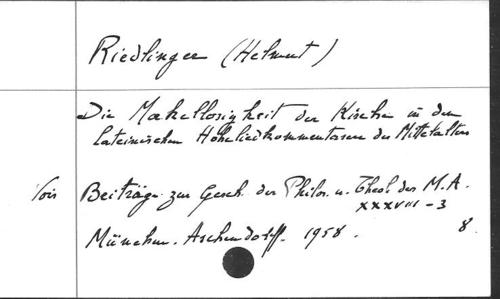 Riedlinger (Helmut)
Die Makellosigkeit der Kirche in den
lateinischen Hoheliedkommentaren des Mittelalters
Voir Beiträge zur Gesch. der Philos. u. Theol. des M.A.
XXXVIII-3
München. Aschendorff. 1958. 8.